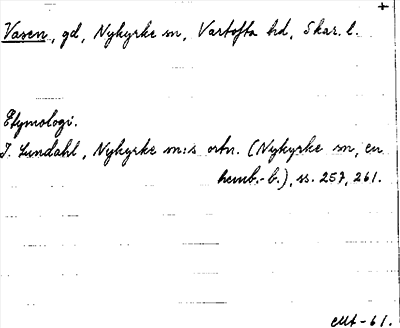 Vasen, gd, Nykyrke sn, Vartofta hd, Skar. l.
Etymologi.
I. Lundahl, Nykyrke sn:s ortn. (Nykyrke sn, en
hemb.-b.), ss. 257, 261.
-61.